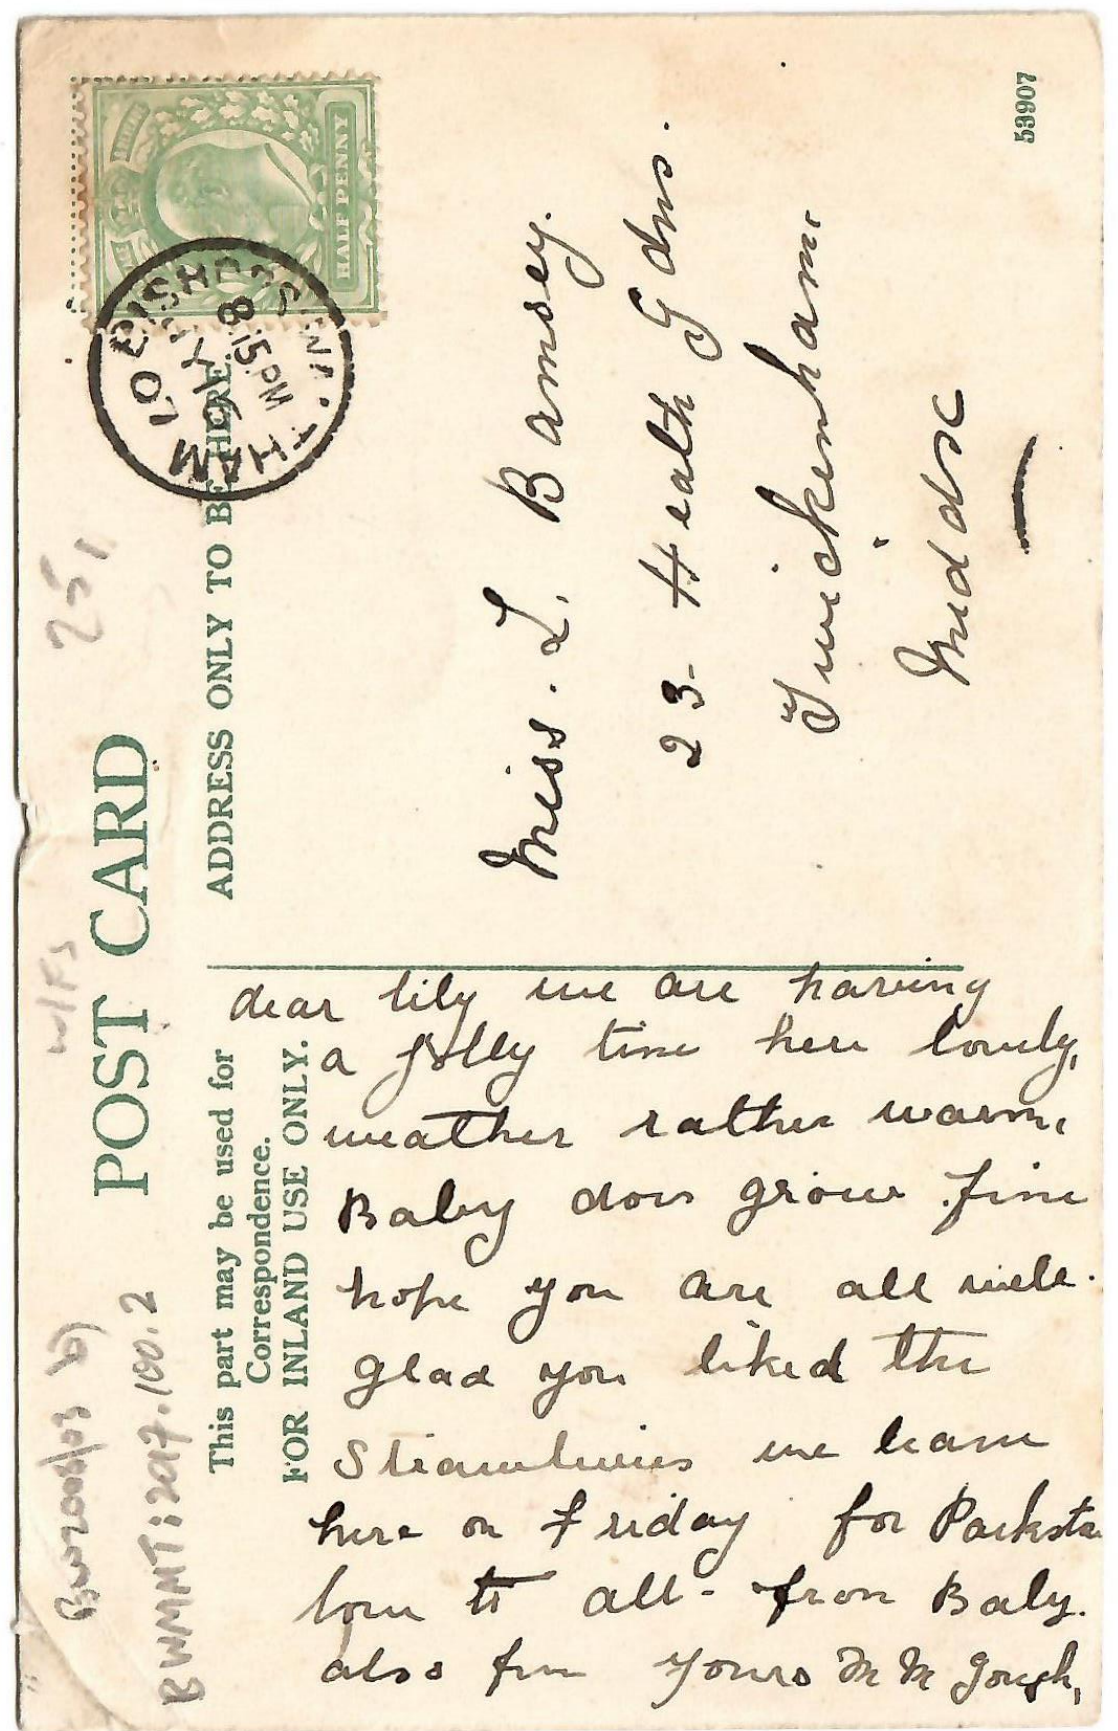 POST CARD
This part may be used for
Correspondence.
FOR INLAND USE ONLY.
ADDRESS ONLY TO BE HERE.
HALF PENNY
BISHOPS WALTHAM
8.15 PM
10
53907
251
W/FS
BW2008/03 b)
BWMMT:2017.100.2
Miss. L. Bamsey.
23 - Heath Gdns.
Twickenham
Middx
dear lily we are having
a jolly time here lovely,
weather rather warm,
Baby does grow fine
hope you are all well.
glad you liked the
Strawberries we leave
here on Friday for Parksto
love to all - from Baby.
also from yours M M Gough,